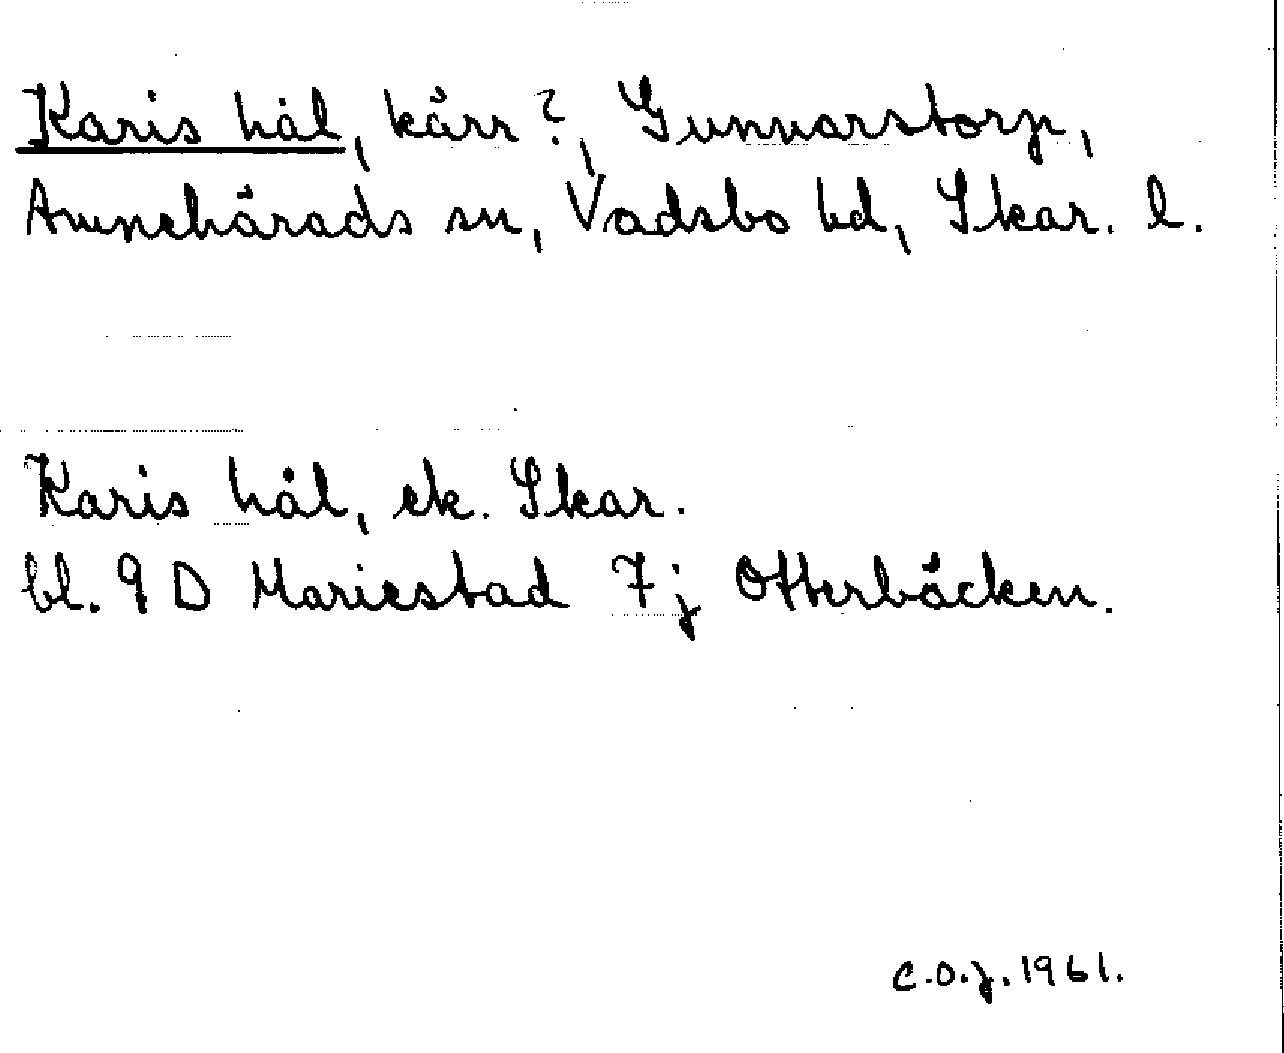 Karis hål, kärr?, Gunnarstorp,
Amnehärads sn, Vadsbo hd, Skar. l.
Karis hål, ek. Skar.
bl. 9 D Mariestad 7 j Otterbäcken.
C.O.J. 1961.